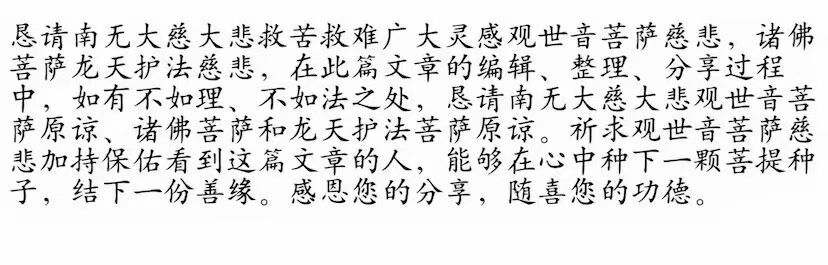 恳请南无大慈大悲救苦救难广大灵感观世音菩萨慈悲，诸佛
菩萨龙天护法慈悲，在此篇文章的编辑、整理、分享过程
中，如有不如理、不如法之处，恳请南无大慈大悲观世音菩
萨原谅、诸佛菩萨和龙天护法菩萨原谅。祈求观世音菩萨慈
悲加持保佑看到这篇文章的人，能够在心中种下一颗菩提种
子，结下一份善缘。感恩您的分享，随喜您的功德。